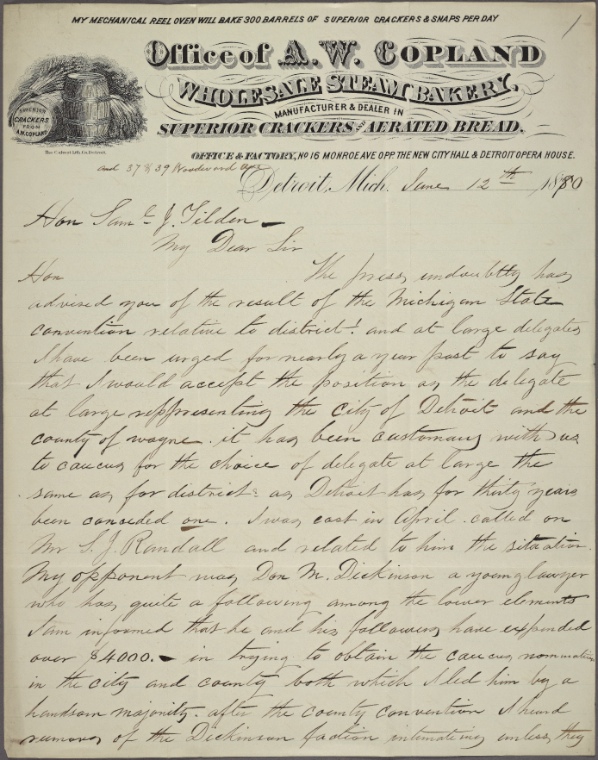 MY MECHANICAL REEL OVEN WILL BAKE 300 BARRELS OF SUPERIOR CRACKERS & SNAPS PER DAY
1
Office of A. W. COPLAND
WHOLESALE STEAM BAKERY,
MANUFACTURER & DEALER IN
SUPERIOR CRACKERS AND AERATED BREAD.
SUPERIOR
CRACKERS
FROM
A.W. COPLAND
OFFICE & FACTORY, NO 16 MONROE AVE OPP. THE NEW CITY HALL & DETROIT OPERA HOUSE.
and 37 & 39 Woodward Ave
Detroit, Mich. June 12th 1880
Hon Saml J. Tilden —
My Dear Sir
Hon The press undoubtly has
advised you of the result of the Michigan State
convention relative to district & and at large delegates
I have been urged for nearly a year past to say
that I would accept the position as the delegate
at large reppresenting the city of Detroit and the
county of wayne. it has been customary with us
to caucus for the choice of delegate at large the
same as for district & as Detroit has for thirty years
been conseded one. I was east in April. called on
Mr S. J. Randall and related to him the situation.
My opponent was Don M. Dickinson a young lawyer
who has quite a following among the lower elements
I am informed that he and his followers have expended
over $4000. — in trying to obtain the caucus nomination
in the city and county both which I led him by a
handsom majority. after the county convention I heard
rumors of the Dickinson faction intimating unless they